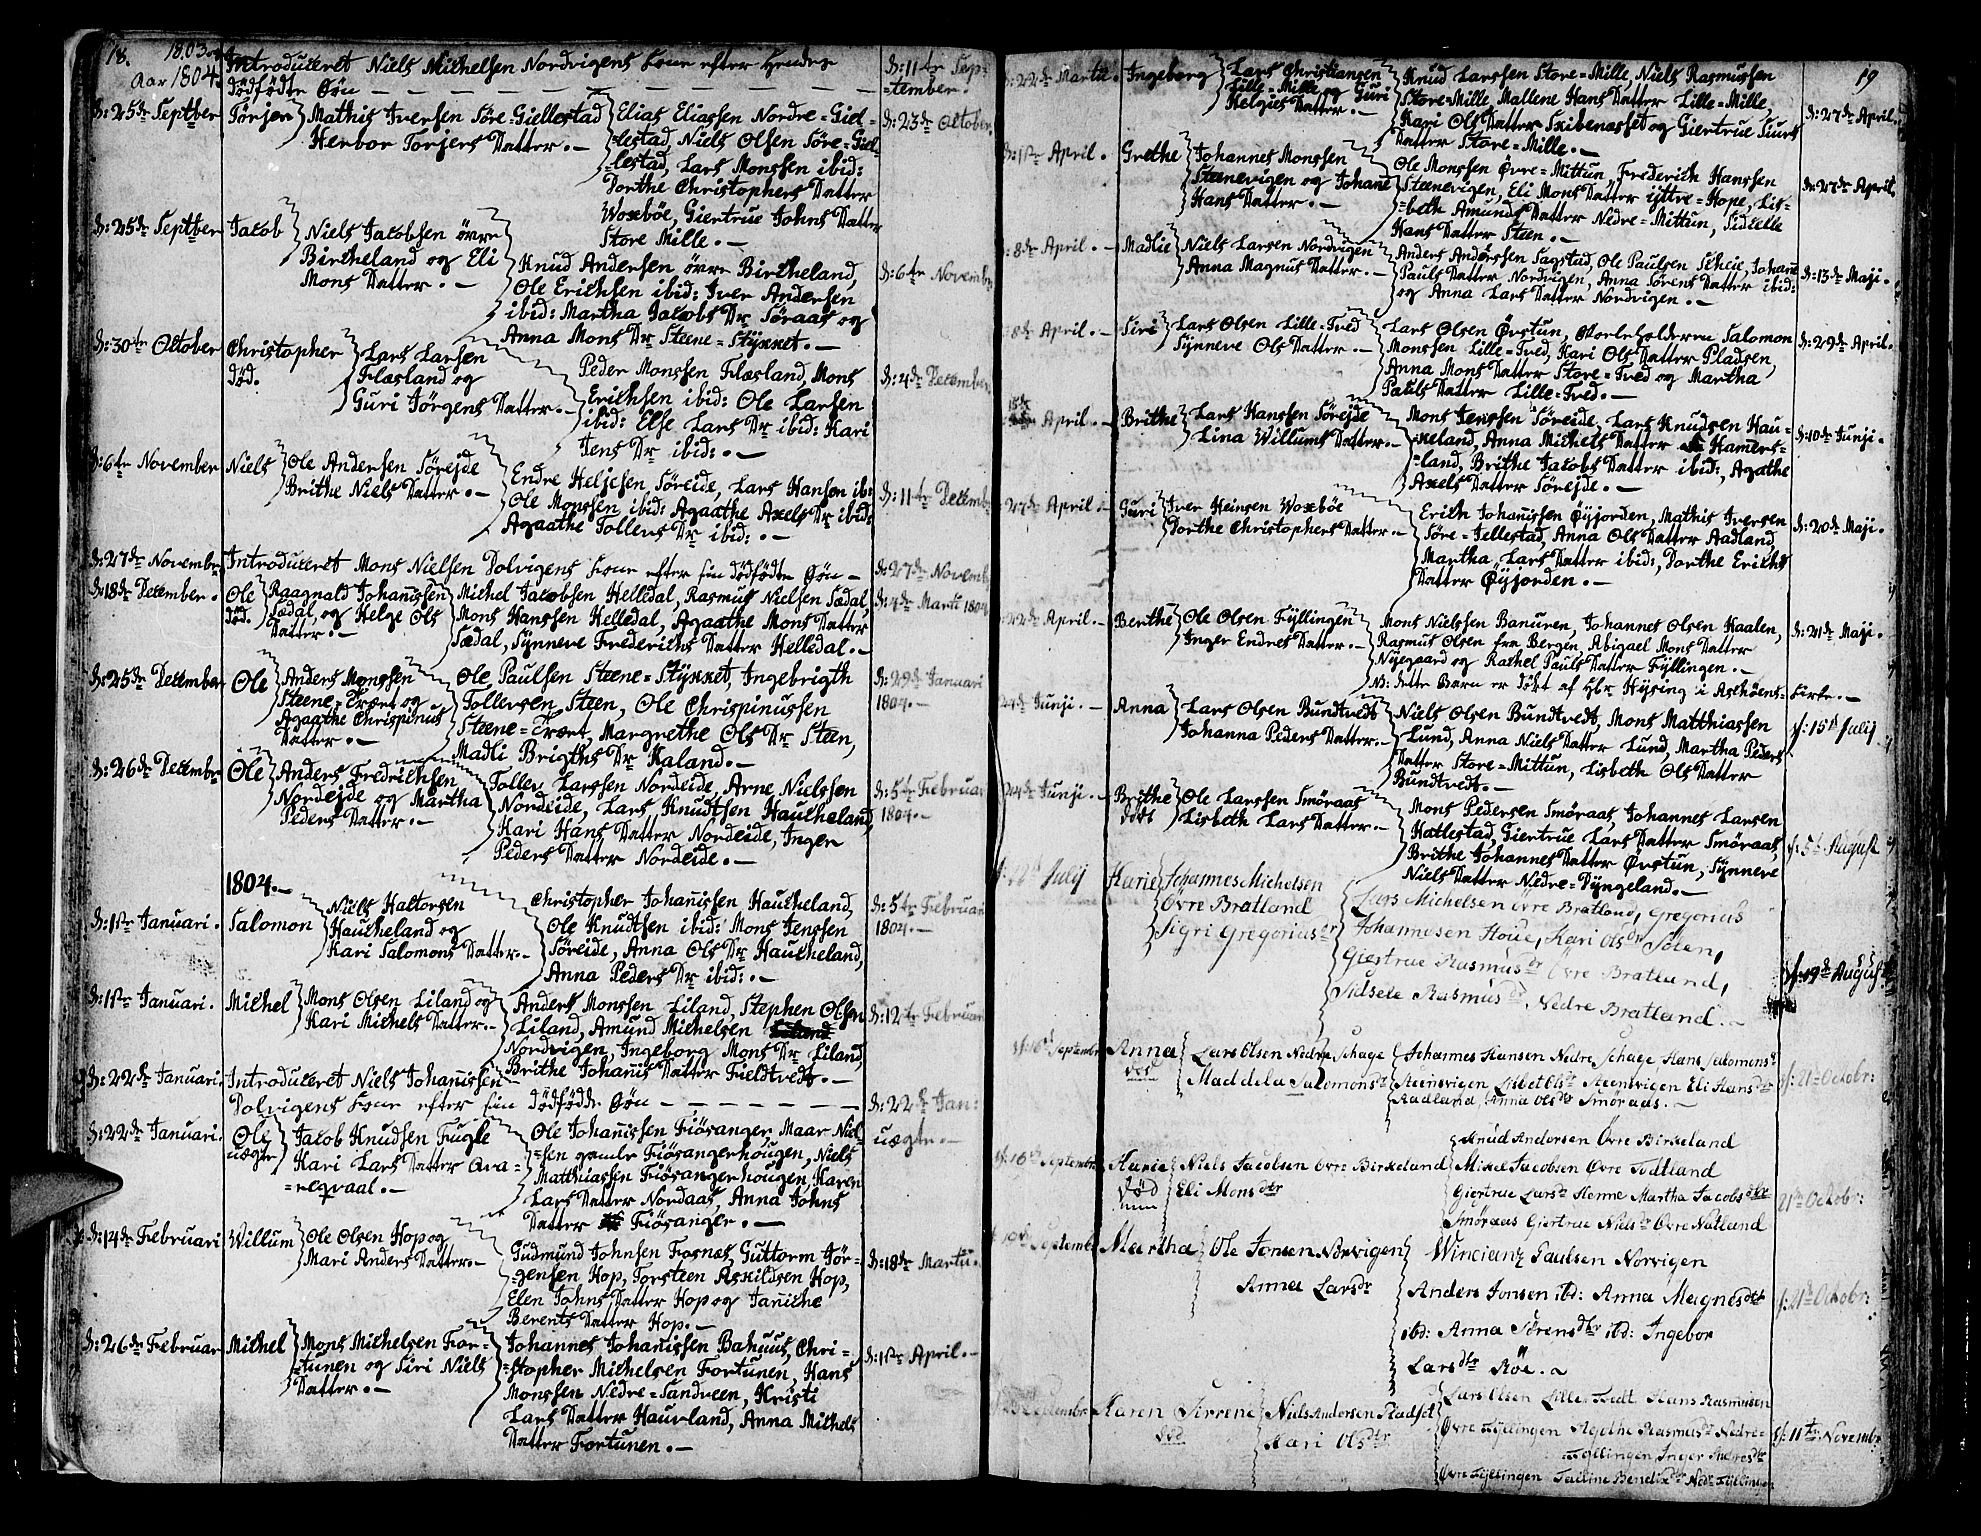 18. 1803 og
Aar 1804.
Introduceret Niels Michelsen Nordvigens Kone efter hendes
dödfödte Sön — d: 11te September.
d: 25de Septber Torjer Mathis Iversen Söre-Giellestad
Herbor Torjers Datter.—
Elias Eliassen Nordre-Giel-
-lestad, Niels Olsen Söre-Giel-
-lestad, Lars Monssen ibid:
Dorthe Christophers Datter
Woxböe, Giertrue Johns Datter
Store Mille.—
d: 23de October
d: 25de Septber Jacob Niels Jacobsen övre
Bircheland og Eli
Mons Datter.—
Knud Andersen övre Bircheland,
Ole Erichsen ibid: Iver Andersen
ibid: Martha Jacobs Dr Söraas og
Anna Mons Dr Steene-Stÿkket.—
d: 6te November
d: 30te October Christopher
död.
Lars Larsen
Flæsland og
Guri Jörgens Datter.—
Peder Monssen Flæsland, Mons
Erichsen ibid: Ole Larsen
ibid: Else Lars Dr ibid: Kari
Jens Dr ibid:.—
d: 4de December
d: 6te November Niels Ole Andersen Söreide
Brithe Niels Datter.—
Endre Heljesen Söreide, Lars Hansen ib:
Ole Monssen ibid: Agaathe Axels Dr ibid:
Agaathe Tollevs Dr ibid:.—
d: 11te Decemb
d: 27de Novembr Introduceret Mons Nielsen Dolvigens Kone efter sin dödfödte Sön — d: 27de Novemb
d: 18de December. Ole
död.
Raagnald Johannissen
Sædal, og Helge Ols
Datter.—
Michel Jacobsen Helledal, Rasmus Nielsen Sædal,
Mons Hanssen Helledal, Agaathe Mons Datter
Sædal, Synneve Frederichs Datter Helledal.—
d: 4de Marti 1804
d: 25de December Ole Anders Monssen
Steene-Træet og
Agaathe Chrispinus
Datter.—
Ole Paulsen Steene-Stÿkket, Ingebrigth
Tollevsen, Steen, Ole Chrispinussen
Steene-Træet, Margrethe Ols Dr Steen,
Madli Brigths Dr Kaland.—
d: 29de Januari
1804.—
d: 26de Decembr Ole Anders Fredrichsen
Nordeide og Martha
Peders Datter.—
Tollev Larssen Nordeide, Arne Nielssen
Nordeide, Lars Knudtsen Haucheland,
Kari Hans Datter Nordeide, Inger
Peders Datter Nordeide.—
d: 5te Februar
1804.—
1804.—
d: 1ste Januari. Salomon Niels Haltorsen
Haucheland og
Kari Salomons Datter.—
Christopher Johannissen Haucheland,
Ole Knudtsen ibid: Mons Jenssen
Söreide, Anna Ols Dr Haucheland,
Anna Peders Dr ibid:.—
d: 5te Februari
1804.—
d: 1ste Januari. Michel Mons Olsen Liland og
Kari Michels Datter.—
Anders Monssen Liland, Stephen Olsen
Liland, Amund Michelsen
Nordvigen, Ingeborg Mons Dr Liland,
Brithe Johannis Datter Fieldtvedt.—
d: 12te Februari
d: 22de Januari. Introduceret Niels Johannissen
Dolvigens Kone efter sin dödfödte Sön — d: 22de Jan:
d: 22de Januari. Ole
uægte
Jacob Knudsen Fugle
Kari Lars Datter
Ole Johannissen Fiösanger, Maar Niel-
-sen gamle Fiösangerhougen, Niels
Matthiassen Fiösangerhougen, Karen
Lars Datter Nordaas, Anna Johns
Datter Fiösanger.—
uægte.—
d: 14de Februari Willum Ole Olsen Hop og
Mari Anders Datter.—
Gudmund Johnsen Fosnæs, Guttorm Jör-
-gensen Hop, Torsteen Askildsen Hop,
Elen Johns Datter Hop og Janiche
Berents Datter Hop.—
d: 18de Martii.
d: 26de Februar Michel Mons Michelsen For-
-tunen og Siri Niels
Datter.—
Johannes Johannissen Bahuus, Chri-
-stopher Michelsen Fortunen, Hans
Monssen Nedre-Sandveen, Kristi
Lars Datter Hauvland, Anna Michels
Datter Fortunen.—
d: 1ste April.—
19
d: 22de Martii. Ingeborg Lars Christiansen
Lille-Mille og Guri
Helgies Datter.—
Knud Larssen Store-Mille, Niels Rasmussen
Store-Mille, Mallene Hans Datter Lille-Mille,
Kari Ols Datter Skibenæsset og Giertrue Siurs
Datter Store-Mille.—
d: 27de April.
d: 1ste April. Grethe Johannes Monssen
Steenevigen og Johane
Hans Datter.—
Ole Monssen Øvre-Mittun, Frederich Hanssen
Steenevigen, Eli Mons Datter ijttre-Hope, Lis-
-beth Amunds Datter Nedre-Mittun, Sidselle
Hans Datter Steen.—
d: 27de April.
8de April.— Madlie Niels Larsen Nordvigen
Anna Magnus Datter.—
Anders Anderssen Sagstad, Ole Paulsen Scheie, Johane
Pauls Datter Nordvigen, Anna Sörens Datter ibid:
og Anna Lars Datter Nordvigen.—
d: 13de Maji.
8de April.— Siri Lars Olsen Lille-Tved
Synneve Ols Datter.—
Lars Olsen Øvstun, Qvarleholderen Salomon
Monssen Lille-Tved, Kari Ols Datter Pladsen,
Anna Mons Datter Store-Tved og Martha
Pauls Datter Lille-Tved.—
d: 29de April.
15de April.— Brithe Lars Hanssen Söreide
Lina Willums Datter.—
Mons Jenssen Söreide, Lars Knudsen Hau-
-keland, Anna Michels Datter Hamers-
-land, Brithe Jacobs Datter ibid:, Agathe
Axels Datter Söreide.—
d: 10de Junji.
27de April. Guri Iver Heinsen Woxböe
Dorthe Christophers Datter.—
Erich Johannissen Øyjorden, Mathis Iversen
Söre-Jellestad, Anna Ols Datter Aadland,
Martha Lars Datter ibid:, Dorthe Erichs
Datter Øyjorden.—
d: 20de Maji.
22de April.— Berthe Ole Olsen Fÿllingen
Inger Endres Datter.—
Mons Nielssen Banuren, Johannes Olsen Haalen,
Rasmus Olsen fra Bergen, Abigael Mons Datter
Nyegaard og Rachel Pauls Datter Fÿllingen.—
NB: dette Barn er döbt af Hr: Hysing i Askøens-Kirke.—
d: 21de Maji.
24de Junji.— Anna Lars Olsen Bundtvedt
Johanna Peders Datter.—
Niels Olsen Bundtvedt, Mons Matthiassen
Lund, Anna Niels Datter Lund, Martha Peders
Datter Store-Mittun, Lisbeth Ols Datter
Bundtvedt.—
d: 15de Julij
24de Junji.— Brithe
död
Ole Larssen Smöraas
Lisbeth Lars Datter.—
Mons Pedersen Smöraas, Johannes Larsen
Hattestad, Giertrue Lars Datter Smöraas,
Brithe Johannes Datter Øvstun, Synneve
Niels Datter Nedre-Dyngeland.—
d: 5te August
Julij Karie Johannes Michelsen
Övre Bratland
Sigri Gregorius dr
Lars Michelsen Övre Bratland, Gregorius
Johannesen Houe, Kari Ols dr Steen,
Giertrue Rasmus dr Övre Bratland,
Sidsele Rasmus dr Nedre Bratland.—
d: 19de August
d: 16de Septembr Anna
Lars Olsen Nedre Schage
Maddela Salomons dr
Johannes Hansen Nedre Schage, Hans Salomons
Steensvigen Lisbet Ols dr Steensvigen Eli Hans dtr
Aadland, Anna Ols dr Smöraas.—
d: 21de Octobr:
d: 16de Septembr Karie
Död
Niels Jacobsen Övre Birkeland
Eli Mons dtr
Knud Andersen Övre Birkeland
Mikel Jacobsen Övre Todtland
Giertrue Lars dr Henne Martha Jacobs dtr
Smöraas Giertrue Niels dr Övre Natland
21de Octobr:
Septembr Martha Ole Jonsen Norvigen
Anna Lars dr
Wincianz Paulsen Norvigen
Anders Jonsen ibd: Anna Magnes dtr
ibd: Anna Sörens dtr ibd: Ingebor
Lars dtr Röe.
d: 21de Octobr:
Septembr Karen Serrene
död
Niels Andersen
Kari Ols dtr
Lars Olsen Lille Tvedt Hans Rasmusen
Övre Fyllingen Agethe Rasmus dr Nedre-
Fyllingen Inger Andres dtr
Övre Fyllingen Bendix dtr Nedr Fyllingen
d: 11te Novembr